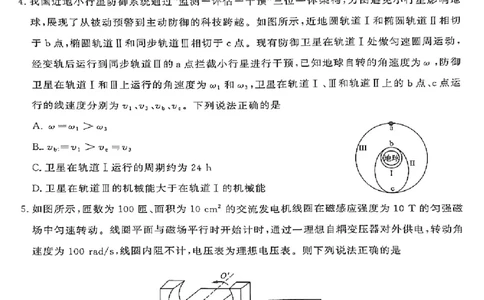 4. 我国近地小行星防御系统通过“监测—评估—干预”三位一体架构,方面避免小行星影响地
球,展现了从被动预警到主动防御的科技跨越。如图所示,近地圆轨道Ⅰ和椭圆轨道Ⅱ相切
于b点,椭圆轨道Ⅱ和同步轨道Ⅲ相切于c点。现有防御卫星在轨道Ⅰ处做匀速圆周运动,
经变轨后运行到同步轨道Ⅲ的a点拦截小行星进行干预,已知地球自转的角速度为ω,防御
卫星在轨道Ⅰ和Ⅲ上运行的角速度为ω₁和ω₃,卫星在轨道Ⅰ、Ⅲ和轨道Ⅱ上的b点、c点运
行的线速度分别为v₁、v₃、v_b、v_c。下列说法正确的是
A. ω=ω₁>ω₃
B. v_b=v₁>v_c=v₃
C. 卫星在轨道Ⅰ运行的周期约为24 h
D. 卫星在轨道Ⅲ的机械能大于在轨道Ⅰ的机械能
a
Ⅲ
b
地球
Ⅰ
Ⅱ
c
5. 如图所示,匝数为100匝、面积为10 cm²的交流发电机线圈在磁感应强度为10 T的匀强磁
场中匀速转动。线圈平面与磁场平行时开始计时,通过一理想自耦变压器对外供电,转动角
速度为100 rad/s,线圈内阻不计,电压表为理想电压表。则下列说法正确的是
O′